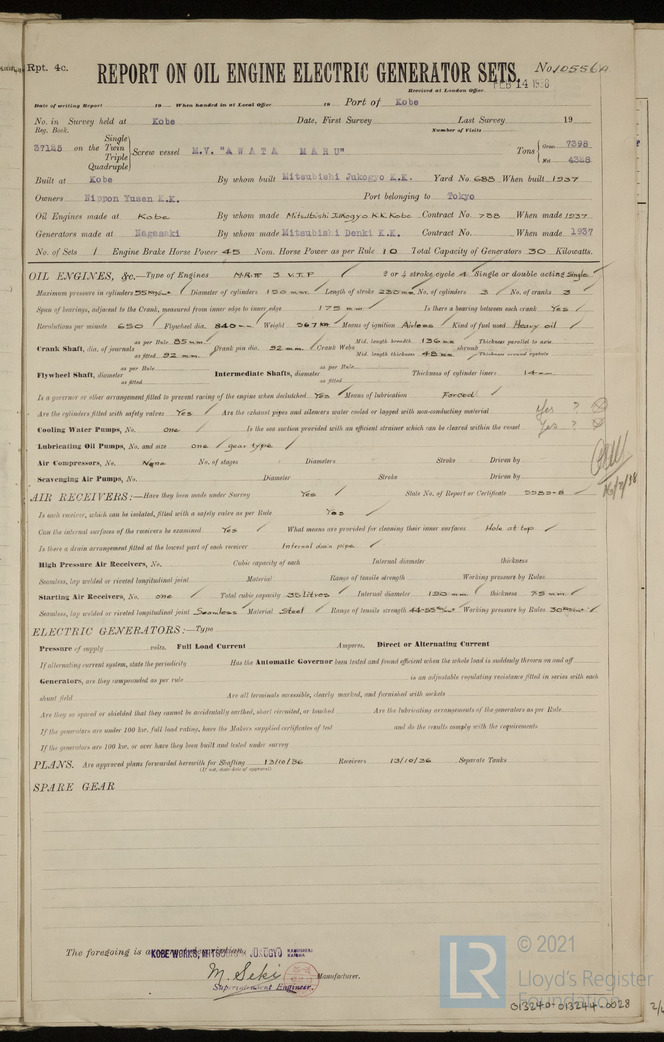 Rpt. 4c.
REPORT ON OIL ENGINE ELECTRIC GENERATOR SETS.
No 10556A
Received at London Office FEB 14 1938
Date of writing Report 19 When handed in at Local Office 19 Port of Kobe
No. in Survey held at Kobe Date, First Survey Last Survey 19
Reg. Book. Number of Visits
37125 on the Single Twin Triple Quadruple Screw vessel M.V. "AWATA MARU" Tons Gross 7398 Net 4328
Built at Kobe By whom built Mitsubishi Jukogyo K.K. Yard No. 688 When built 1937
Owners Nippon Yusen K.K. Port belonging to Tokyo
Oil Engines made at Kobe By whom made Mitsubishi Jukogyo K.K. Kobe Contract No. 788 When made 1937
Generators made at Nagasaki By whom made Mitsubishi Denki K.K. Contract No. When made 1937
No. of Sets 1 Engine Brake Horse Power 45 Nom. Horse Power as per Rule 10 Total Capacity of Generators 30 Kilowatts.
OIL ENGINES, &c.—Type of Engines 3 V.T.F 2 or 4 stroke cycle 4 Single or double acting Single
Maximum pressure in cylinders 55 Diameter of cylinders 150 mm. Length of stroke 230 mm No. of cylinders 3 No. of cranks 3
Span of bearings, adjacent to the Crank, measured from inner edge to inner edge 175 mm Is there a bearing between each crank Yes
Revolutions per minute 650 Flywheel dia. 840 mm Weight 567 KG Means of ignition Airless Kind of fuel used Heavy oil
Crank Shaft, dia. of journals as per Rule 85 mm. as fitted 92 mm. Crank pin dia. 92 mm. Crank Webs Mid. length breadth 136 mm Mid. length thickness 48 mm shrunk Thickness parallel to axis Thickness around eyehole
Flywheel Shaft, diameter as per Rule as fitted Intermediate Shafts, diameter as per Rule as fitted Thickness of cylinder liners 14 mm
Is a governor or other arrangement fitted to prevent racing of the engine when declutched Yes Means of lubrication Forced
Are the cylinders fitted with safety valves Yes Are the exhaust pipes and silencers water cooled or lagged with non-conducting material Yes ?
Cooling Water Pumps, No. one Is the sea suction provided with an efficient strainer which can be cleared within the vessel Yes ?
Lubricating Oil Pumps, No. and size one gear type
Air Compressors, No. None No. of stages Diameters Stroke Driven by
Scavenging Air Pumps, No. Diameter Stroke Driven by
AIR RECEIVERS:—Have they been made under Survey Yes State No. of Report or Certificate
Is each receiver, which can be isolated, fitted with a safety valve as per Rule Yes
Can the internal surfaces of the receivers be examined Yes What means are provided for cleaning their inner surfaces Hole at top
Is there a drain arrangement fitted at the lowest part of each receiver Internal drain pipe
High Pressure Air Receivers, No. Cubic capacity of each Internal diameter thickness
Seamless, lap welded or riveted longitudinal joint Material Range of tensile strength Working pressure by Rules
Starting Air Receivers, No. one Total cubic capacity 35 Litres Internal diameter 190 mm. thickness 7.5 mm.
Seamless, lap welded or riveted longitudinal joint Seamless Material Steel Range of tensile strength 44-55 Working pressure by Rules 30
ELECTRIC GENERATORS:—Type
Pressure of supply volts. Full Load Current Amperes. Direct or Alternating Current
If alternating current system, state the periodicity Has the Automatic Governor been tested and found efficient when the whole load is suddenly thrown on and off
Generators, are they compounded as per rule is an adjustable regulating resistance fitted in series with each
shunt field Are all terminals accessible, clearly marked, and furnished with sockets
Are they so spaced or shielded that they cannot be accidentally earthed, short circuited, or touched Are the lubricating arrangements of the generators as per Rule
If the generators are under 100 kw. full load rating, have the Makers supplied certificates of test and do the results comply with the requirements
If the generators are 100 kw. or over have they been built and tested under survey
PLANS. Are approved plans forwarded herewith for Shafting 13/10/36 Receivers 13/10/36 Separate Tanks
(If not, state date of approval)
SPARE GEAR
The foregoing is a correct description,
KOBE WORKS, MITSUBISHI JUKOGYO KABUSHIKI KAISHA
M. Seki Manufacturer.
Superintendent Engineer.
LR © 2021
Lloyd's Register
Foundation
013240-013244-0028